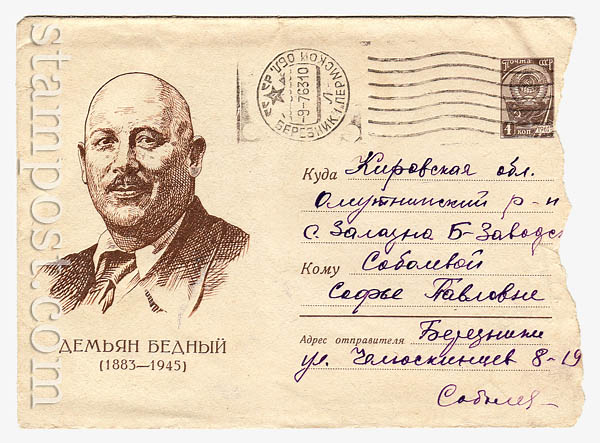 stampost.com
ДЕМЬЯН БЕДНЫЙ
(1883—1945)
БЕРЕЗНИК ПЕРМСКОЙ ОБЛ.
СССР
-9-7 63 10
Л
ПОЧТА СССР
4 КОП
1961
Куда Кировская обл.
Омутнинский р-н
с. Залазна Б-Заводс
Кому Соболевой
Софье Павловне
Адрес отправителя Березники
ул. Челюскинцев 8-19
Соболев